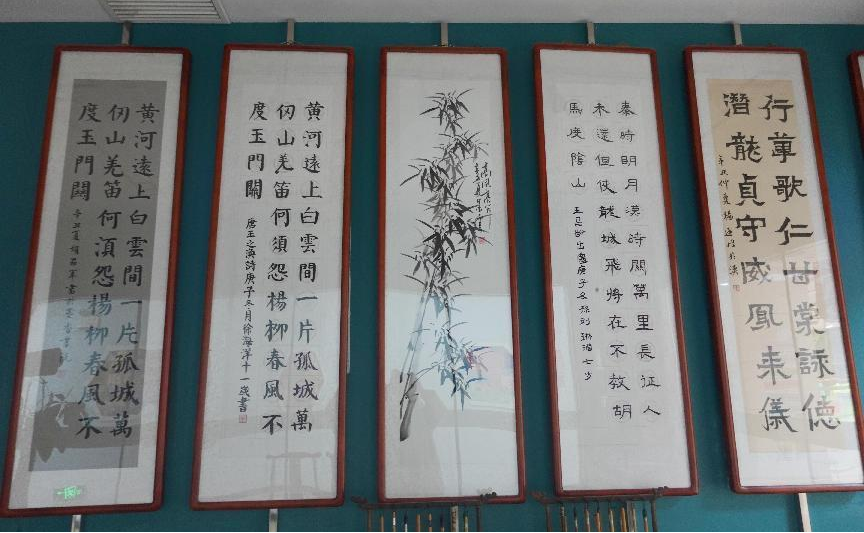 黄河遠上白雲間一片孤城萬
仞山羌笛何湏怨楊柳春風不
度玉門關
辛丑夏
黄河遠上白雲間一片孤城萬
仞山羌笛何須怨楊柳春風不
度玉門關
唐王之渙詩庚子三月徐海洋十一歲書
秦時明月漢時關萬里長征人
未還但使龍城飛將在不教胡
馬度陰山
王昌齡出塞庚子冬
行葦歌仁甘棠詠德
潛龍貞守威鳳来儀